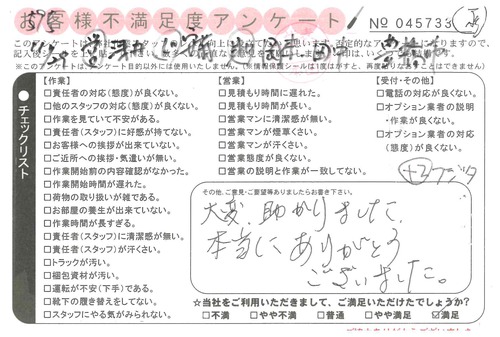 お客様不満足度アンケート
No 045733
【作業】
□責任者の対応(態度)が良くない。
□他のスタッフの対応(態度)が良くない。
□作業を見ていて不安がある。
□責任者(スタッフ)に好感が持てない。
□お客様への挨拶が出来ていない。
□ご近所への挨拶・気遣いが無い。
□作業開始前の内容確認がなかった。
□作業開始時間が遅れた。
□荷物の取り扱いが雑である。
□お部屋の養生が出来ていない。
□作業時間が長すぎる。
□責任者(スタッフ)に清潔感が無い。
□責任者(スタッフ)が汗くさい。
□トラックが汚い。
□梱包資材が汚い。
□運転が不安(下手)である。
□靴下の履き替えをしてない。
□スタッフにやる気がみられない。
チェックリスト
【営業】
□見積もり時間に遅れた。
□見積もり時間が長い。
□営業マンに清潔感が無い。
□営業マンが煙草くさい。
□営業マンが汗くさい。
□営業態度が良くない。
□営業の説明と作業が一致してない。
【受付・その他】
□電話の対応が良くない。
□オプション業者の説明
・作業が良くない。
□オプション業者の対応
(態度)が良くない。
その他、ご意見・ご要望等ありましたらお書き下さい。
大変、助かりました。
本当に ありがとう
ございました。
☆当社をご利用いただきまして、ご満足いただけたでしょうか?
□不満 □やや不満 □普通 □やや満足 ☑満足